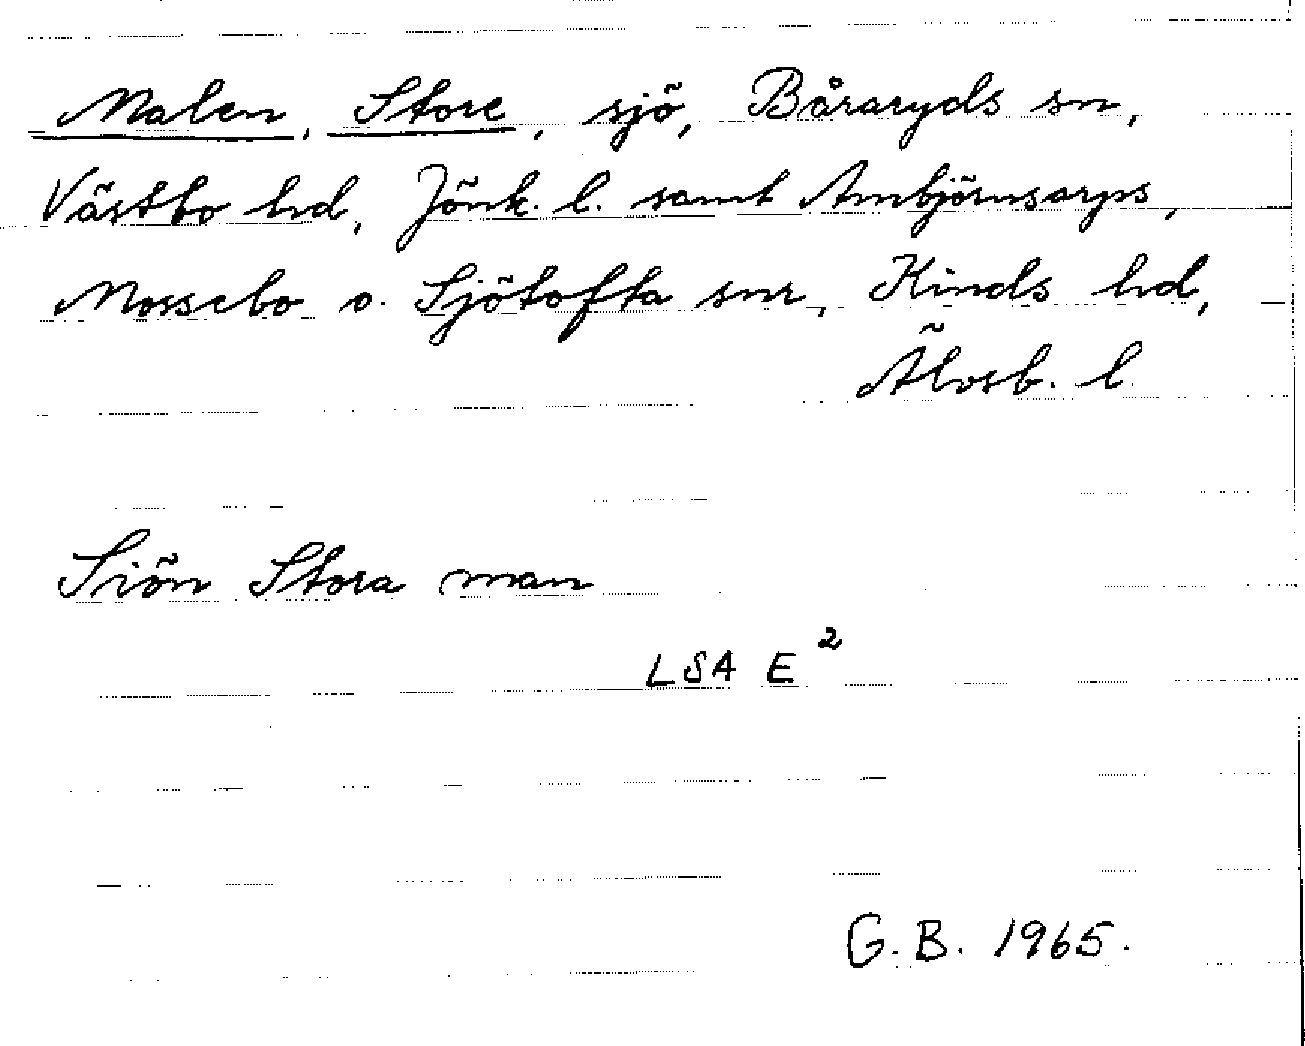 Malen, Store, sjö, Båraryds sn,
Västbo hd, Jönk. l. samt Ambjörnsarps,
Mossebo o. Sjötofta snr, Kinds hd,
Älvsb. l.
Siön Stora man
LSA E²
G. B. 1965.